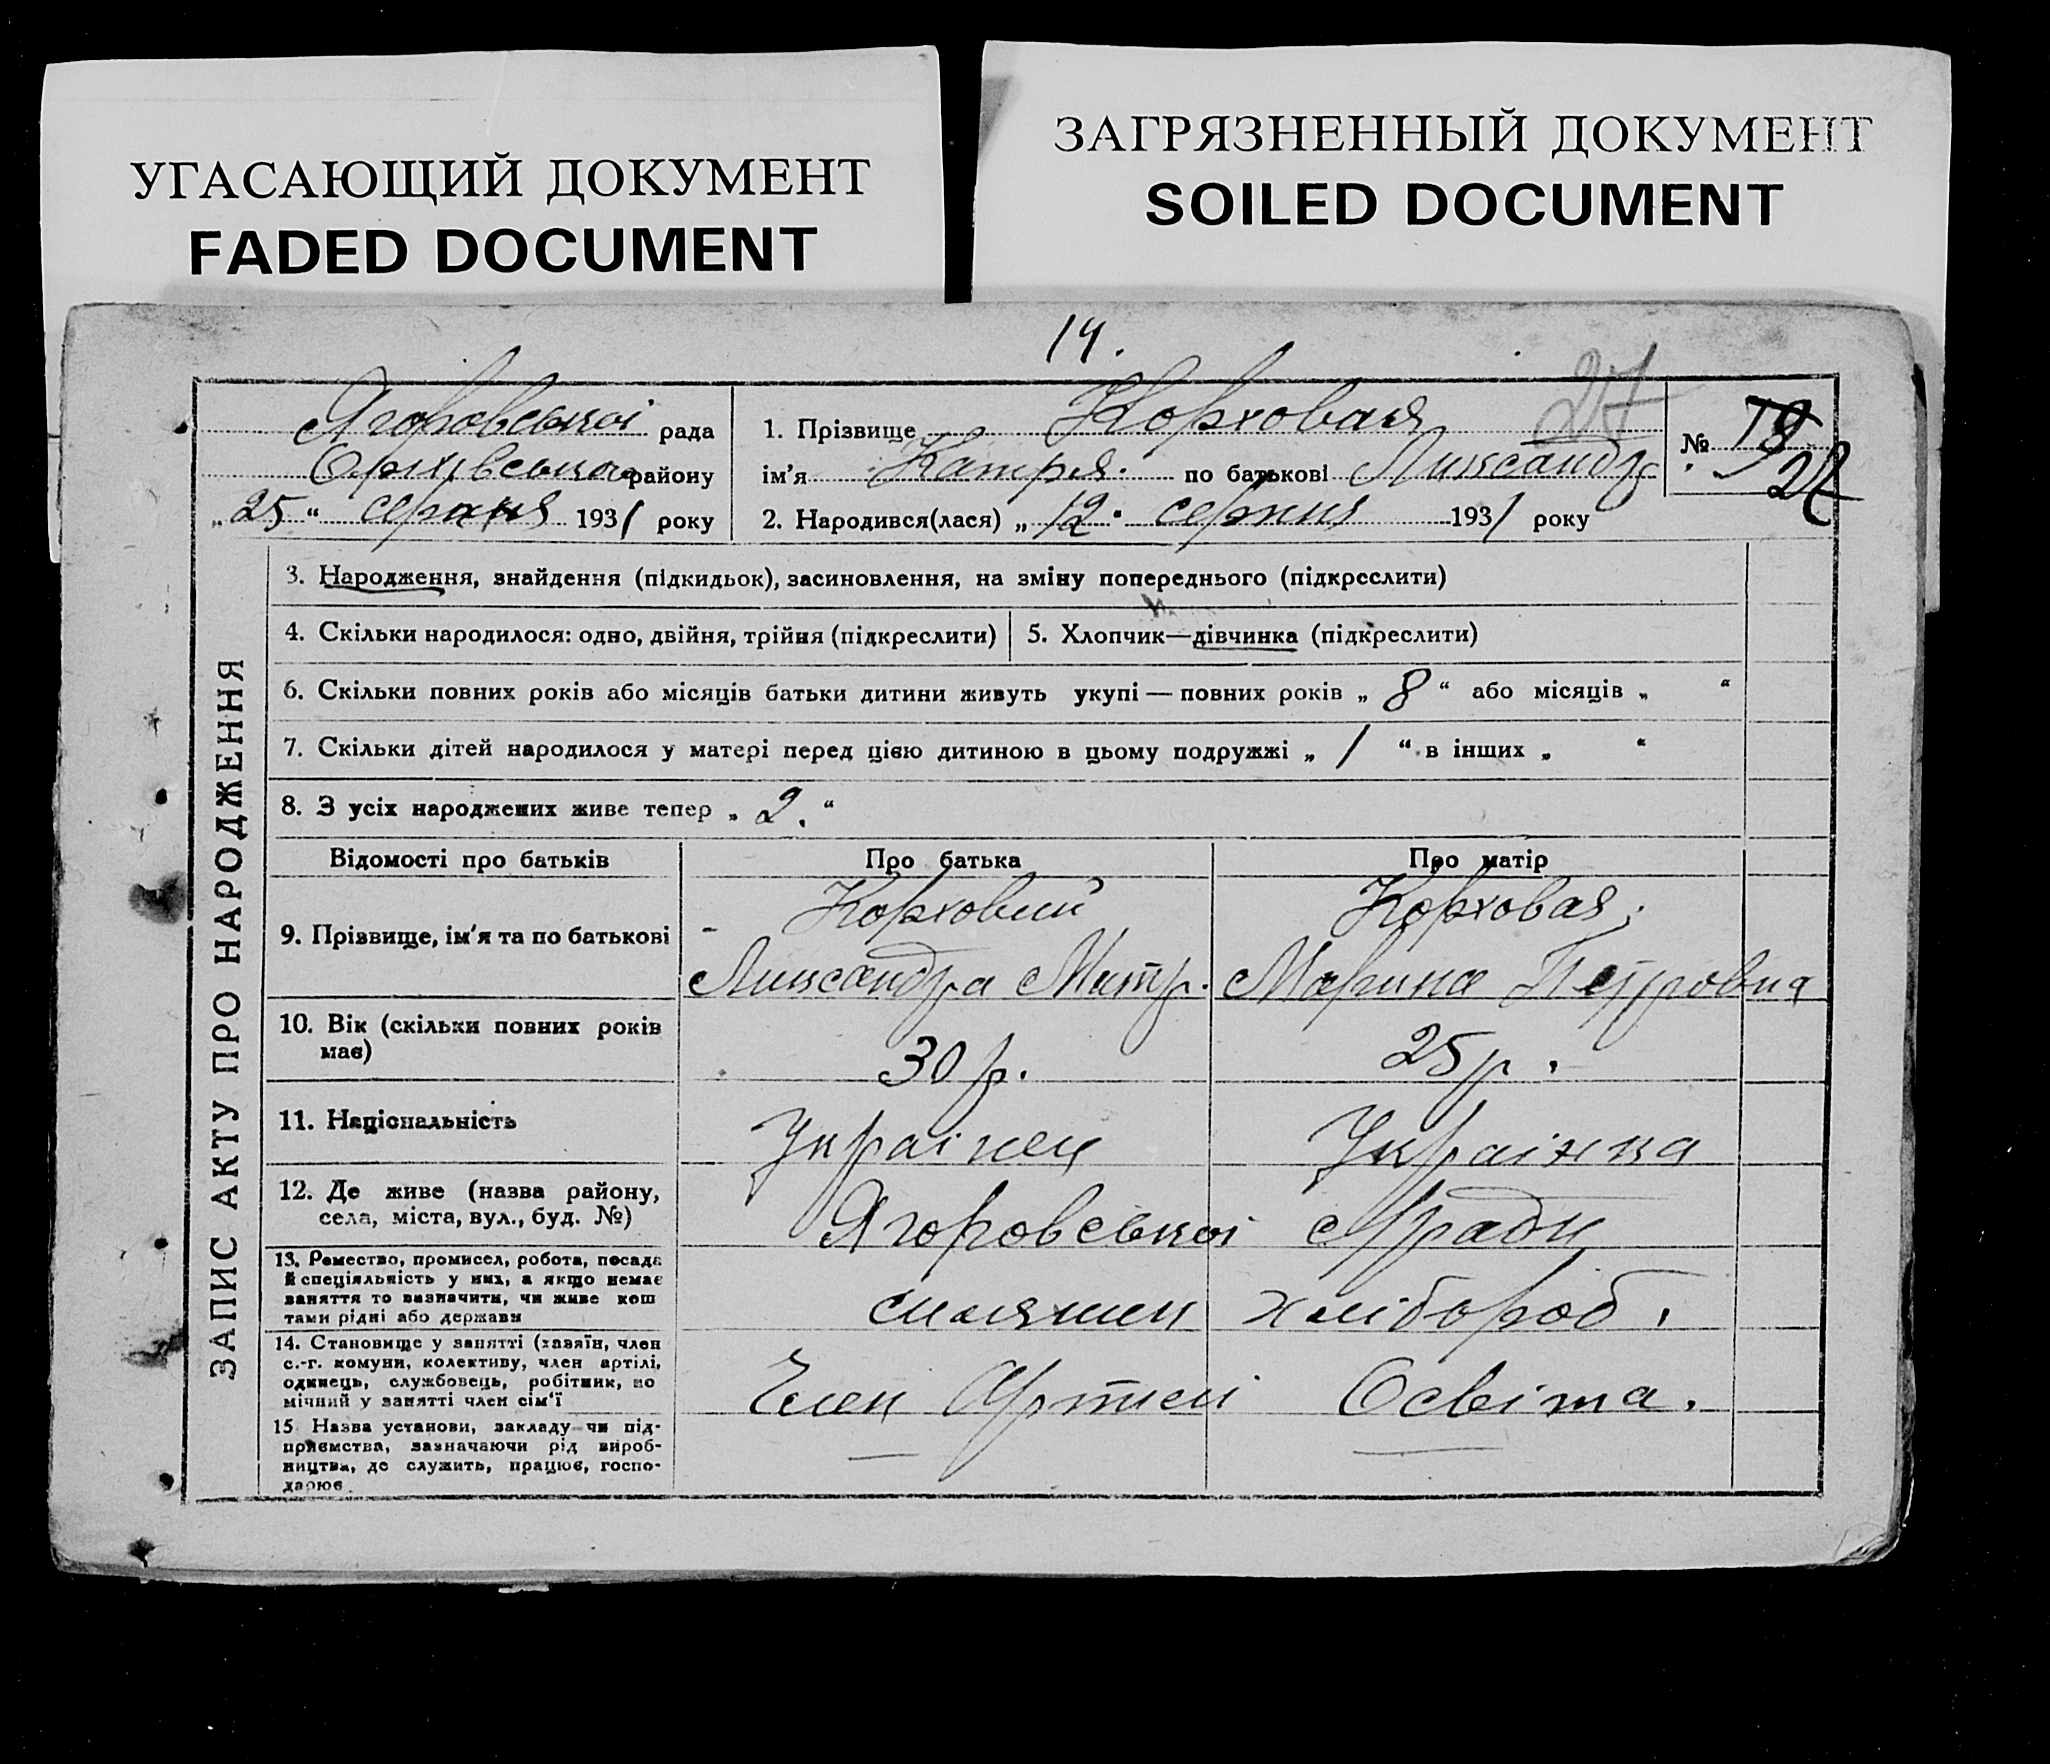 УГАСАЮЩИЙ ДОКУМЕНТ
FADED DOCUMENT
ЗАГРЯЗНЕННЫЙ ДОКУМЕНТ
SOILED DOCUMENT
14.
27
Ягоровської рада
району
„25“ серпня 1931 року
1. Прізвище Корховая
ім'я Катря. по батькові Ликсандр
2. Народився(лася) „12“ серпня 1931 року
№ 19
27
ЗАПИС АКТУ ПРО НАРОДЖЕННЯ
3. Народження, знайдення (підкидьок), засиновлення, на зміну попереднього (підкреслити)
4. Скільки народилося: одно, двійня, трійня (підкреслити)
5. Хлопчик—дівчинка (підкреслити)
6. Скільки повних років або місяців батьки дитини живуть укупі — повних років „ 8 “ або місяців „ “
7. Скільки дітей народилося у матері перед цією дитиною в цьому подружжі „ 1 “ в інших „ “
8. З усіх народжених живе тепер „ 2. “
Відомості про батьків
Про батька
Про матір
9. Прізвище, ім'я та по батькові
Корховий
Ликсандра Митр.
Корховая
Марина Петровна
10. Вік (скільки повних років
має)
30 р.
25 р.
11. Національність
Украінец
Украінка
12. Де живе (назва району,
села, міста, вул., буд. №)
Ягоровськоі с/ради
13. Ремество, промисел, робота, посада
й спеціяльність у них, а якщо немає
заняття то визначити, чи живе кош
тами рідні або держави
хлібороб.
14. Становище у занятті (хазяїн, член
с.-г. комуни, колективу, член артілі,
одинець, службовець, робітник, по
мічний у занятті член сім'ї
Член Артилі Освіта.
15 Назва установи, закладу чи під-
приємства, зазначаючи рід вироб-
ництва, де служить, працює, госпо-
дарює